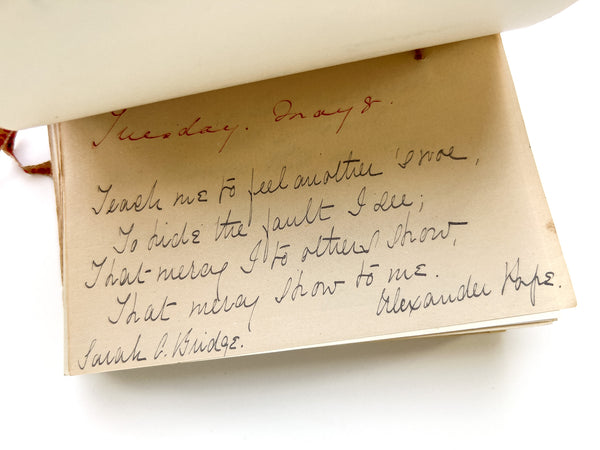 Tuesday. May 8.
Teach me to feel another's woe,
To hide the fault I see;
That mercy I to others show,
That mercy show to me.
Alexander Pope.
Sarah C. Bridge.